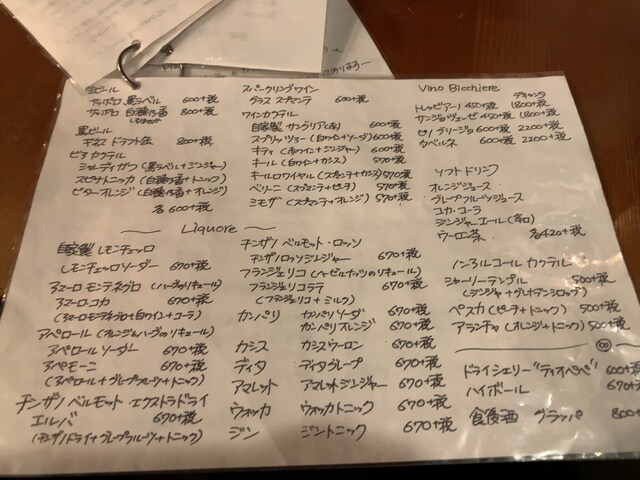 生ビール
サッポロ 黒ラベル 600+税
サッポロ 白穂乃香 800+税
黒ビール
ギネス ドラフト缶 800+税
ビアカクテル
シャンディガフ (黒ラベル+ジンジャー)
スピナトニッカ (白穂乃香+トニック)
ビターオレンジ (白穂乃香+オレンジ)
各600+税
スパークリングワイン
グラス スプマンテ 600+税
ワインカクテル
自家製 サングリア(赤) 600+税
スプリッツァー (白ワイン+ソーダ) 600+税
キティ (赤ワイン+ジンジャー) 600+税
キール (白ワイン+カシス) 570+税
キールロワイヤル (スプマンテ+カシス) 570+税
ベリーニ (スプマンテ+ピーチ) 570+税
ミモザ (スプマンテ+オレンジ) 570+税
Vino Bicchiere
デキャンタ
トレッビアーノ 450+税 1800+税
サンジョヴェーゼ 450+税 1800+税
ピノグリージョ 600+税 2200+税
カベルネ 600+税 2200+税
ソフトドリンク
オレンジジュース
グレープフルーツジュース
コカ・コーラ
ジンジャーエール(辛口)
ウーロン茶 各420+税
Liquore
自家製 レモンチェッロ
レモンチェッロソーダー 670+税
アマーロ モンテネグロ (ハーブのリキュール)
アマーロ・コカ 670+税
(アマーロモンテネグロ+白ワイン+コーラ)
アペロール (オレンジ&ハーブのリキュール)
アペロールソーダー 670+税
アペモーニ 670+税
(アペロール+グレープフルーツ+トニック)
チンザノ ベルモット・エクストラドライ
エルバ 670+税
(チンザノドライ+グレープフルーツ+トニック)
チンザノ ベルモット・ロッソ
チンザノロッソジンジャー 670+税
フランジェリコ (ヘーゼルナッツのリキュール)
フランジェリコラテ 670+税
(フランジェリコ+ミルク)
カンパリ カンパリソーダ 670+税
カンパリオレンジ 670+税
カシス カシスウーロン 670+税
ディタ ディタグレープ 670+税
アマレット アマレットジンジャー 670+税
ウォッカ ウォッカトニック 670+税
ジン ジントニック 670+税
ノンアルコールカクテル
シャーリーテンプル 500+税
(ジンジャー+グレナデンシロップ)
ペスカ (ピーチ+トニック) 500+税
アランチャ (オレンジ+トニック) 500+税
ドライシェリー"ティオペペ" 600+税
ハイボール 670+税
食後酒 グラッパ 800+税